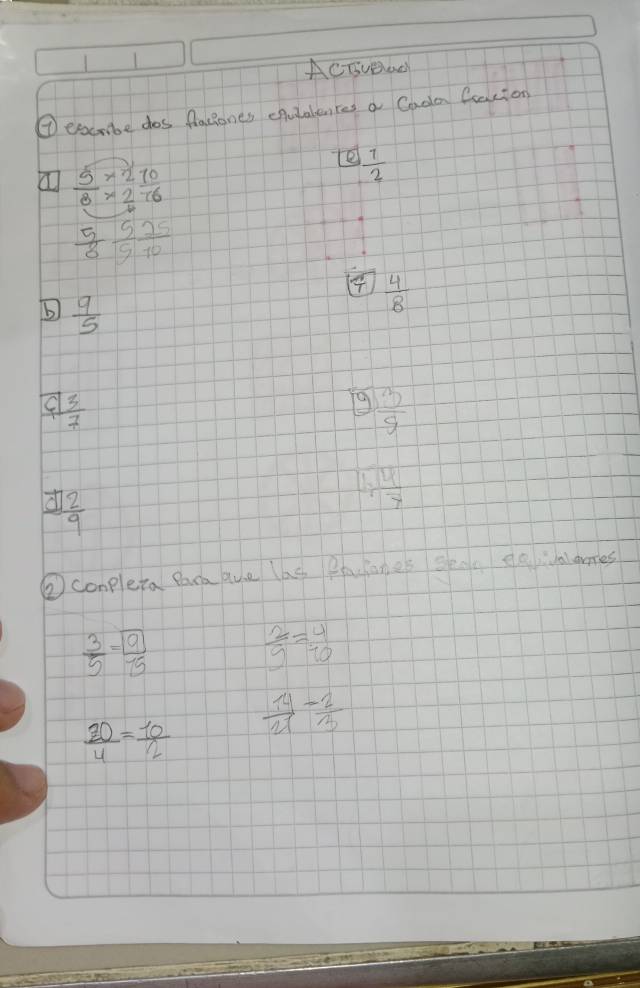 Actividad
① escribe dos fraciones equivalentes a Cada fracion
a 5/8 × 2/2 10/16
e 1/2
5/8 5/5 25/10
b 9/5
f 4/8
c 3/7
g 3/9
d 2/9
h 4/7
② conpleta Para que las fraciones sean equivalentes
3/5 = 9/15
2/5 = 4/10
20/4 = 10/2
14/21 = 2/3